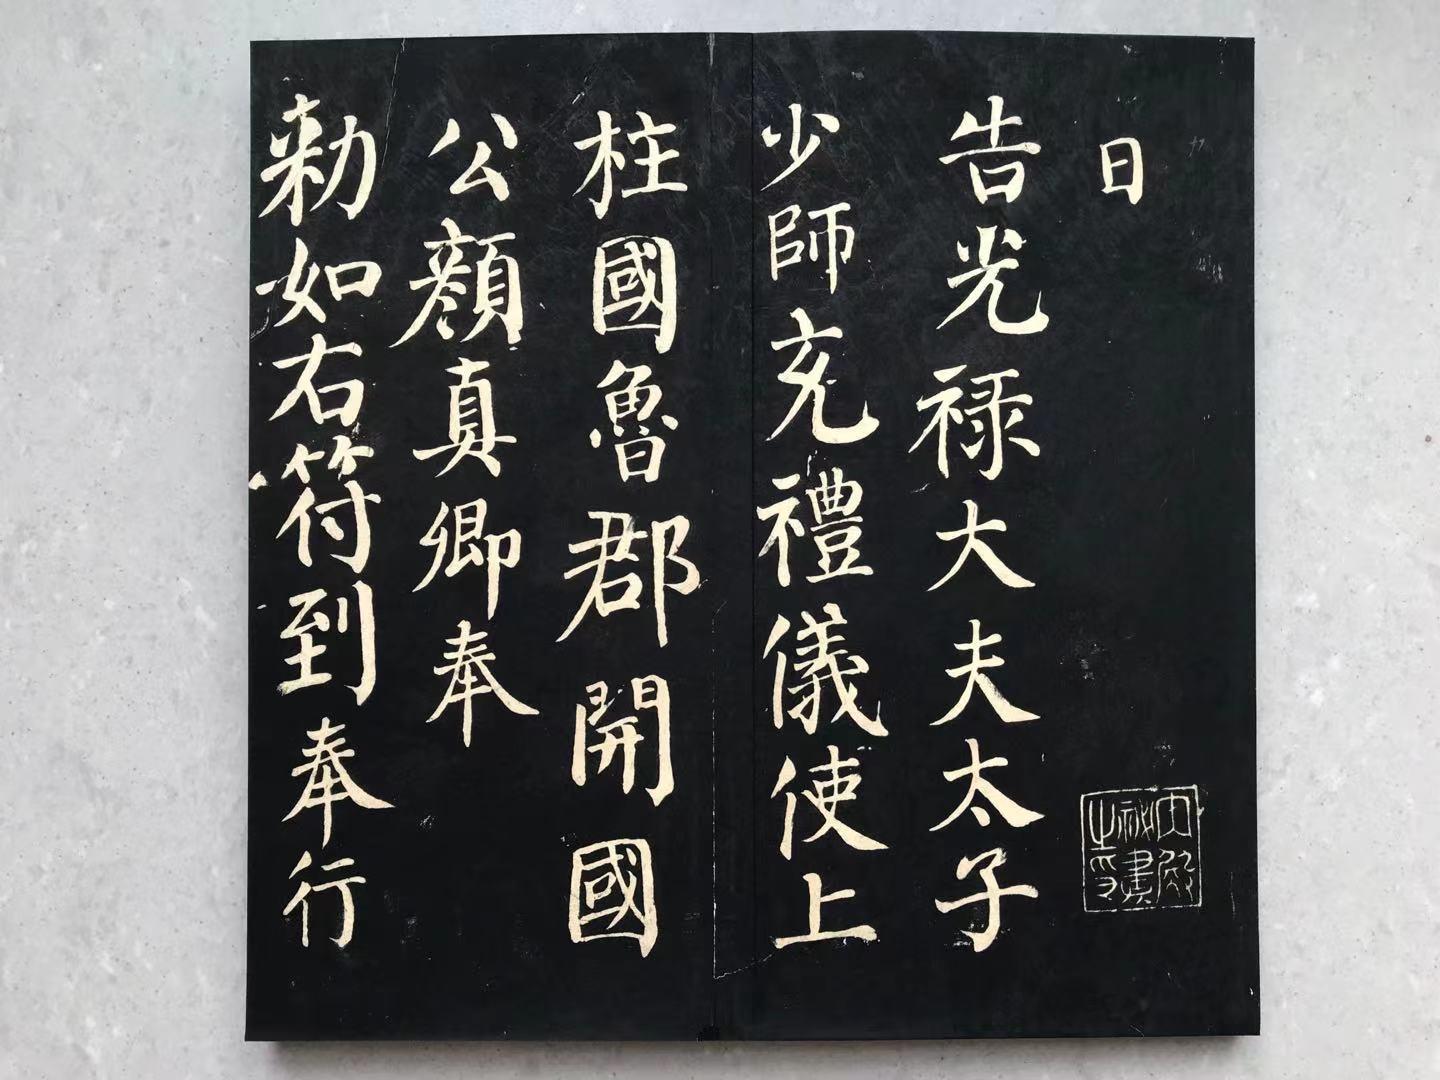 日
告光禄大夫太子
少師充禮儀使上
柱國魯郡開國
公顔真卿奉
勑如右符到奉行
内殿
秘書
之印